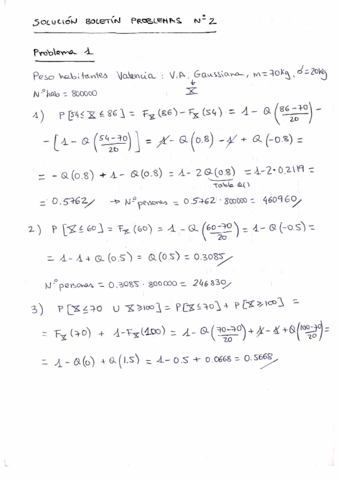 SOLUCIÓN BOLETÍN PROBLEMAS Nº 2
Problema 1
Peso habitantes Valencia : V.A. Gaussiana, m=70kg, σ=20kg
Nº hab = 800000 X
1) P[54≤X≤86] = F_X(86) - F_X(54) = 1 - Q(86-70/20) -
- [1 - Q(54-70/20)] = 1 - Q(0.8) - 1 + Q(-0.8) =
= -Q(0.8) + 1 - Q(0.8) = 1 - 2Q(0.8) = 1-2·0.2119 =
Tabla Q()
= 0.5762 → Nº personas = 0.5762·800000 = 460960
2) P[X≤60] = F_X(60) = 1 - Q(60-70/20) = 1 - Q(-0.5) =
= 1 - 1 + Q(0.5) = Q(0.5) = 0.3085
Nº personas = 0.3085·800000 = 246830
3) P[X≤70 ∪ X≥100] = P[X≤70] + P[X≥100] =
= F_X(70) + 1 - F_X(100) = 1 - Q(70-70/20) + 1 - 1 + Q(100-70/20) =
= 1 - Q(0) + Q(1.5) = 1 - 0.5 + 0.0668 = 0.5668